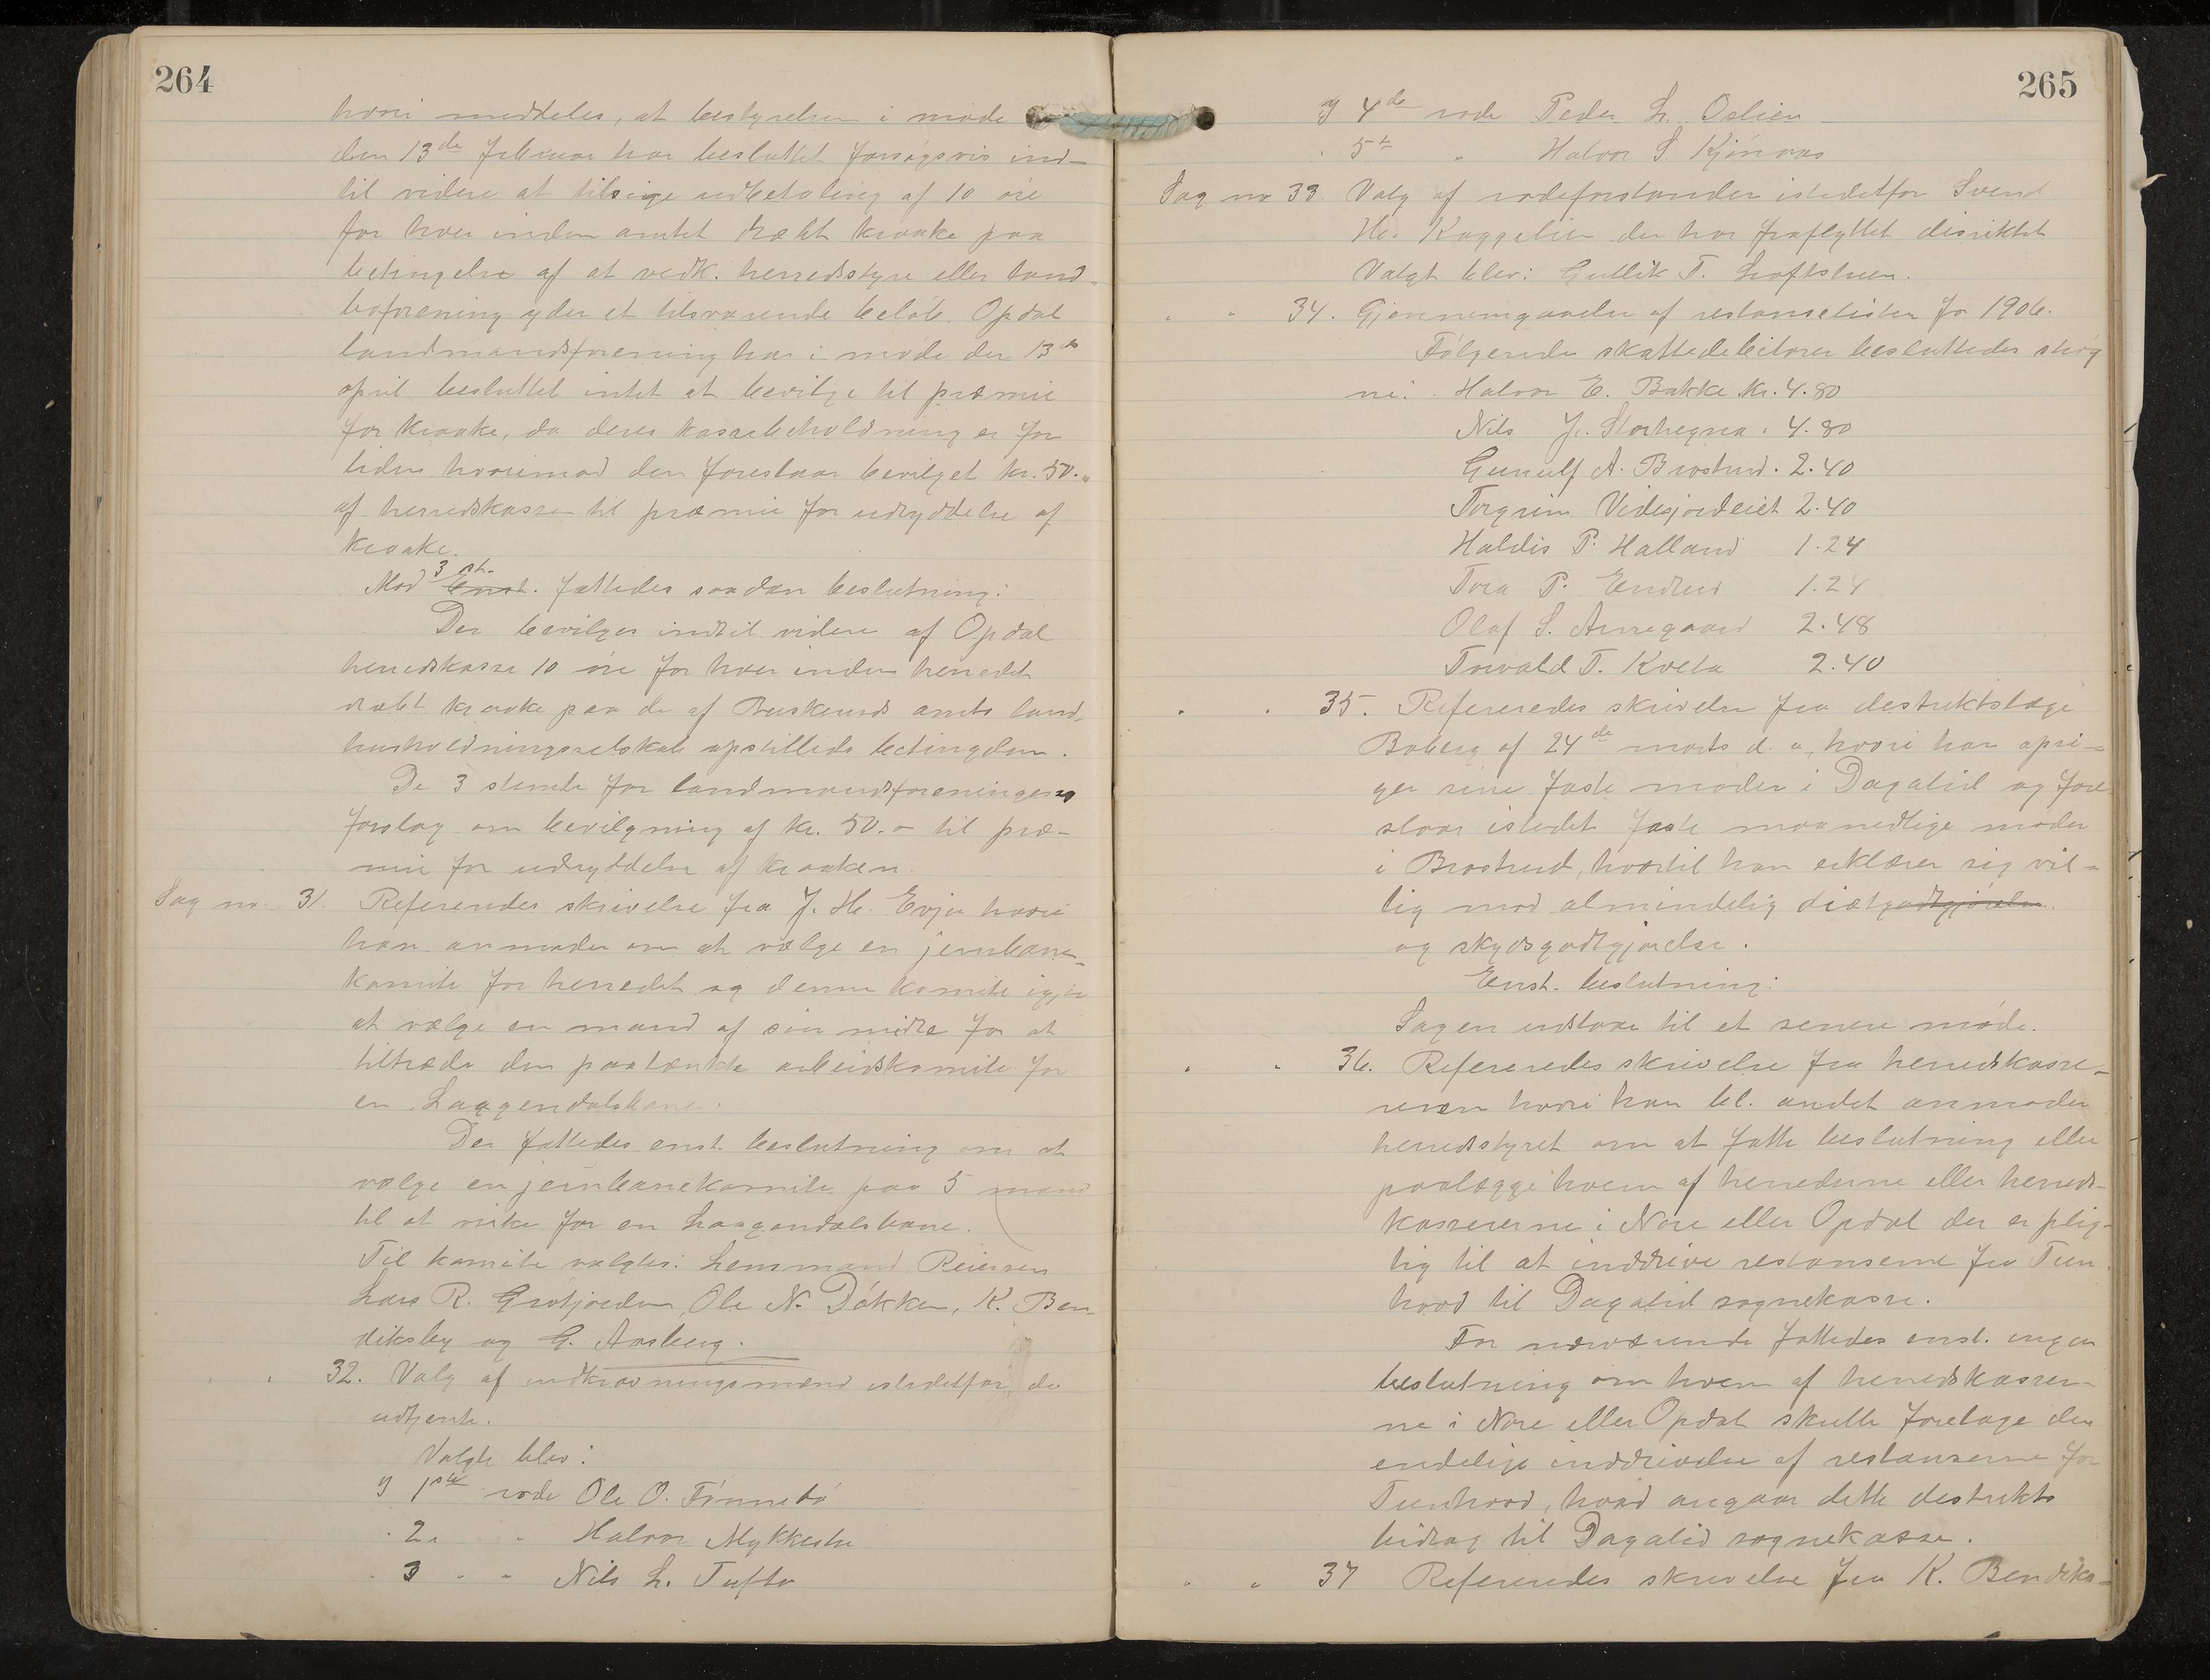 264
hvori meddeles, at bestyrelsen i møde
den 13de februar har besluttet forsøgsvis ind-
til videre at tilsige udbetaling af 10 øre
for hver inden amtet dræbt kraake paa
betingelse af at vedk. herredsstyre eller land-
boforening yder et tilsvarende beløb. Opdal
landmandsforening har i møde den 13de
april besluttet intet at bevilge til præmie
for kraake, da deres kassebeholdning er for
liden hvorimod den foreslaar bevilget kr. 50.-
af herredskassen til præmie for udryddelse af
kraake.
3 st.
Mod Enst. fattedes saadan beslutning:
Der bevilges indtil videre af Opdal
herredskasse 10 øre for hver inden herredet
dræbt kraake paa de af Buskeruds amts land-
husholdningsselskab opstillede betingelser.
De 3 stemte for landmandsforeningens
forslag om bevilgning af kr. 50.- til præ-
mie for udryddelse af kraaken.
Sag no. 31. Refereredes skrivelse fra J. H. Evju hvori
han anmoder om at vælge en jernbane-
komite for herredet og denne komite igjen
at vælge en mand af sin midte for at
tiltræde den paatænkte arbeidskomite for
en Laagendalsbane.
Der fattedes enst. beslutning om at
vælge en jernbanekomite paa 5 mand
til at virke for en Laagendalsbane.
Til komite valgtes: Lensmand Reiersen
Lars R. Grøtjorden, Ole N. Døkken, K. Ben-
diksby og G. Aasberg.
" " 32. Valg af indkrævningsmænd istedetfor de
udtjente.
Valgte blev:
I 1ste rode Ole O. Tønnebø
" 2. " Halvor Mykkestu
" 3 " " Nils L. Tufto
265
I 4de rode Peder L. Oslien
" 5te " Halvor S. Kjønaas
Sag no 33. Valg af rodeforstander istedetfor Svend
H. Kaggelien der har fraflyttet disriktet
Valgt blev: Gullik T. Loftstuen.
" " 34. Gjennemgaaelse af restanselisten for 1906.
Følgende skattedebitorer besluttedes strøg
ne: Halvor E. Bakke kr. 4.80
Nils J. Storhegna " 4.80
Gunulf A. Brostrud " 2.40
Torgrim Videsjordeiet 2.40
Haldis P. Halland 1.24
Tora P. Endrud 1.24
Olaf S. Arnegaard 2.48
Torvald T. Kvela 2.40
" " 35. Refereredes skrivelse fra destriktslæge
Boberg af 24de marts d. a., hvori han opsi-
ger sine faste møder i Dagalid og fore
slaar istedet faste maanedlige møder
i Brostrud, hvortil han erklærer sig vil-
lig mod almindelig diætgodtgjørelse.
og skydsgodtgjørelse.
Enst. beslutning:
Sagen udstaar til et senere møde.
" " 36. Refereredes skrivelse fra herredskasse-
reren hvori han bl. andet anmoder
herredsstyret om at fatte beslutning eller
paalægge hvem af herrederne eller herreds-
kassererne i Nore eller Opdal der er plig-
tig til at inddrive restanserne fra Tun
hovd til Dagalid sognekasse.
For nærværende fattedes enst. ingen
beslutning om hvem af herredskasserer-
ne i Nore eller Opdal skulle foretage den
endelige inddrivelse af restanserne for
Tunhovd, hvad angaar dette destrikts
bidrag til Dagalid sognekasse.
" " 37 Refereredes skrivelse fra K. Bendiks-